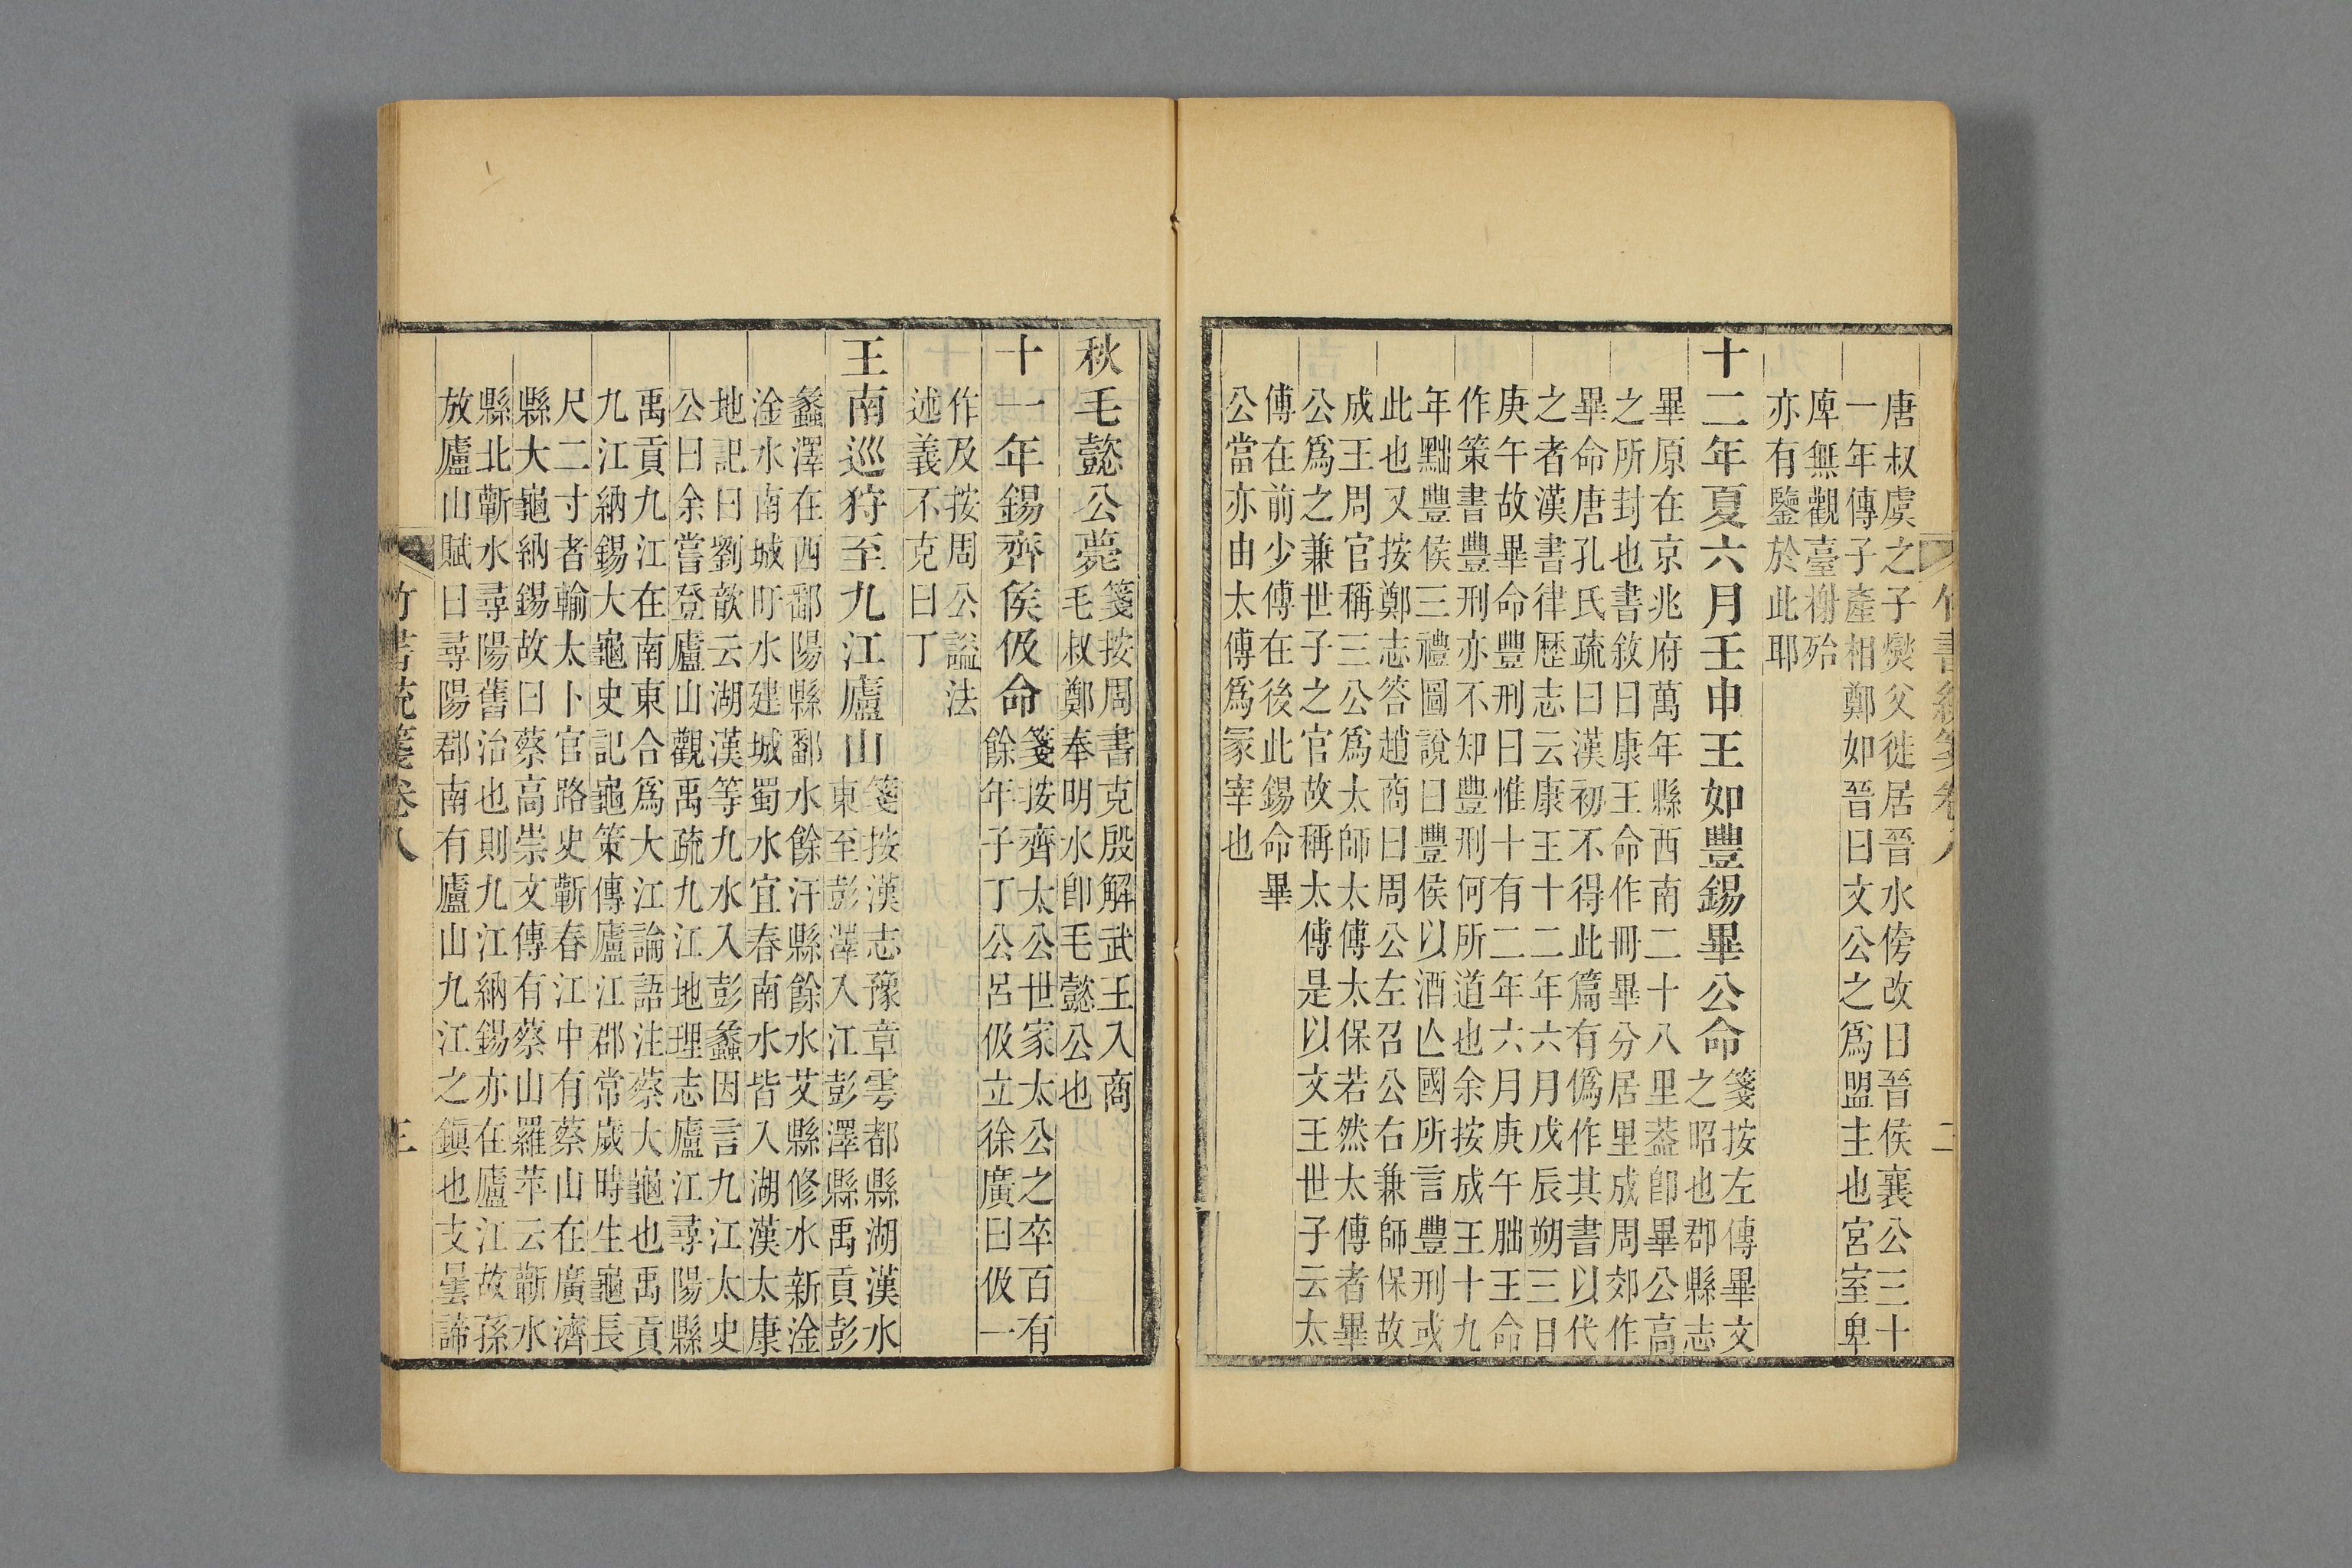 竹書統箋卷八
二
唐叔虞之子燮父徙居晉水傍改曰晉侯襄公三十
一年傳子產相鄭如晉曰文公之爲盟主也宮室卑
庳無觀臺榭殆
亦有鑒於此耶
十二年夏六月壬申王如豐錫畢公命箋按左傳畢文
之昭也郡縣志
畢原在京兆府萬年縣西南二十八里葢卽畢公高
之所封也書敘曰康王命作冊畢分居里成周郊作
畢命唐孔氏疏曰漢初不得此篇有僞作其書以代
之者漢書律歷志云康王十二年六月戊辰朔三日
庚午故畢命豐刑曰惟十有二年六月庚午朏王命
作策書豐刑亦不知豐刑何所道也余按成王十九
年黜豐侯三禮圖說曰豐侯以酒亾國所言豐刑或
此也又按鄭志答趙商曰周公左召公右兼師保故
成王周官稱三公爲太師太傅太保若然太傅者畢
公爲之兼世子之官故稱太傅是以文王世子云太
傅在前少傅在後此錫命畢
公當亦由太傅爲冢宰也
秋毛懿公薨箋按周書克殷解武王入商
毛叔鄭奉明水卽毛懿公也
十一年錫齊侯伋命箋按齊太公世家太公之卒百有
餘年子丁公呂伋立徐廣曰伋一
作及按周公謚法
述義不克曰丁
王南巡狩至九江廬山箋按漢志豫章雩都縣湖漢水
東至彭澤入江彭澤縣禹貢彭
蠡澤在西鄱陽縣鄱水餘汗縣餘水艾縣修水新淦
淦水南城盱水建城蜀水宜春南水皆入湖漢太康
地記曰劉歆云湖漢等九水入彭蠡因言九江太史
公曰余嘗登廬山觀禹疏九江地理志廬江尋陽縣
禹貢九江在南東合爲大江論語注蔡大龜也禹貢
九江納錫大龜史記龜策傳廬江郡常歲時生龜長
尺二寸者輸太卜官路史蘄春江中有蔡山在廣濟
縣大龜納錫故曰蔡高崇文傳有蔡山羅苹云蘄水
縣北蘄水尋陽舊治也則九江納錫亦在廬江故孫
放廬山賦曰尋陽郡南有廬山九江之鎭也支曇諦
竹書統箋卷八
三